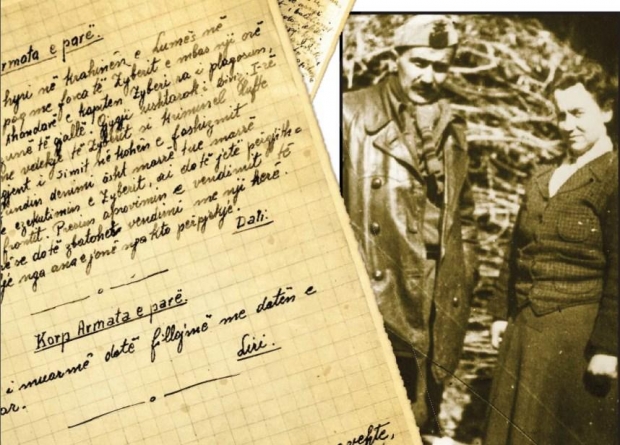 Armata e parë.
hyri në krahinën e Lumës në
me forca të Zyberit e mbas nji orë
Kapiten Zyberi ra i plagosun,
të gjallë. Gjyqi ushtarak i Div. I-rë
me vdekje të Zyberit si kriminel lufte
agjent i Simit në kohën e fashizmit
dënimi âsht marrë tue marrë
e ekzekutimin e Zyberit, ai do të jetë përgjith-
frontit. Presim aprovimin e vendimit të
do të zbatohet vendimi me nji herë.
nga ana e jonë nga kto përpjekje.
Dali:
Korp Armata e parë.
i muarmë datë fillojmë me datën e
ar.
Liri.
vehte,